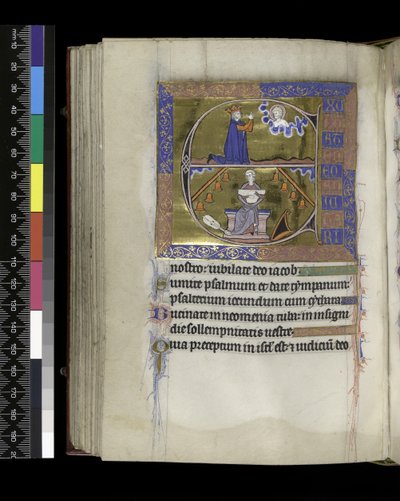 E XU
LTA
TE D
EO
AIU
TORI
nostro: iubilate deo iacob.
Sumite psalmum et date tympanum:
psalterium iocundum cum cythara.
Bucinate in neomenia tuba: in insigni
die sollempnitatis uestre.
Quia preceptum in isrl est: et iudicium deo